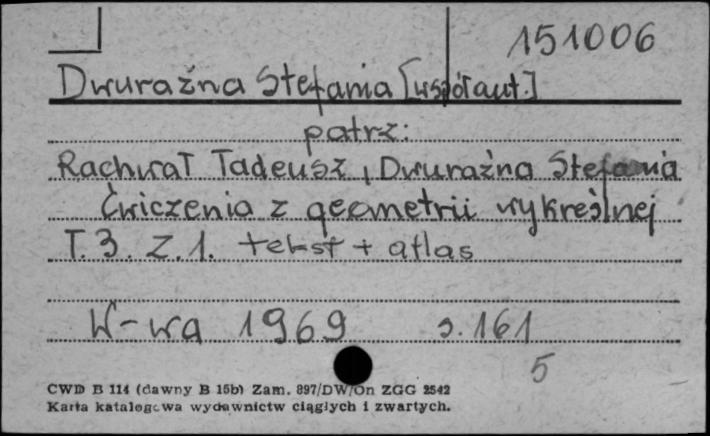 151006
Dwuraźna Stefania [współaut.]
patrz:
Rachwał Tadeusz, Dwuraźna Stefania
Ćwiczenia z geometrii wykreślnej
T. 3. Z. 1. tekst + atlas
W-wa 1969 s. 161
5
CWD B 114 (dawny B 15b) Zam. 897/DW/On ZGG 2542
Karta katalogowa wydawnictw ciągłych i zwartych.